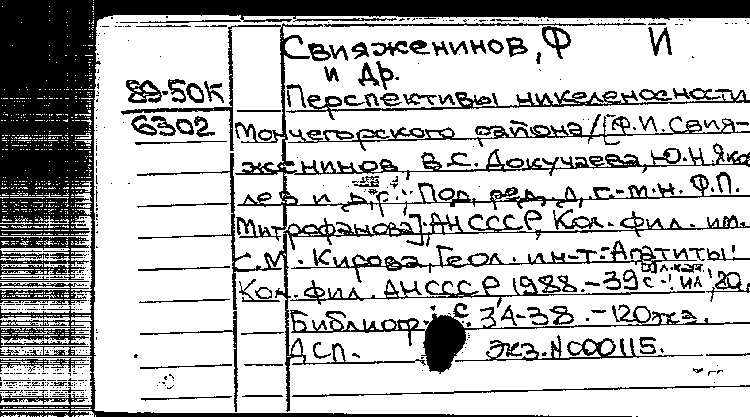 Свияженинов, Ф И
и др.
89-50К
Перспективы никеленосности
6302
Мончегорского района/[Ф.И.Свия-
женинов, В.С.Докучаева, Ю.Н.Яков
лев и др.; Под. ред. д. г.-м.н. Ф.П.
Митрофанова]; АН СССР, Кол. фил. им.
С.М. Кирова, Геол. ин-т.-Апатиты:
Кол. фил. АН СССР, 1988.-39 с.: ил; 20.
Библиогр.: с. 34-38. - 120 экз.
ДСП. экз.N 000115.